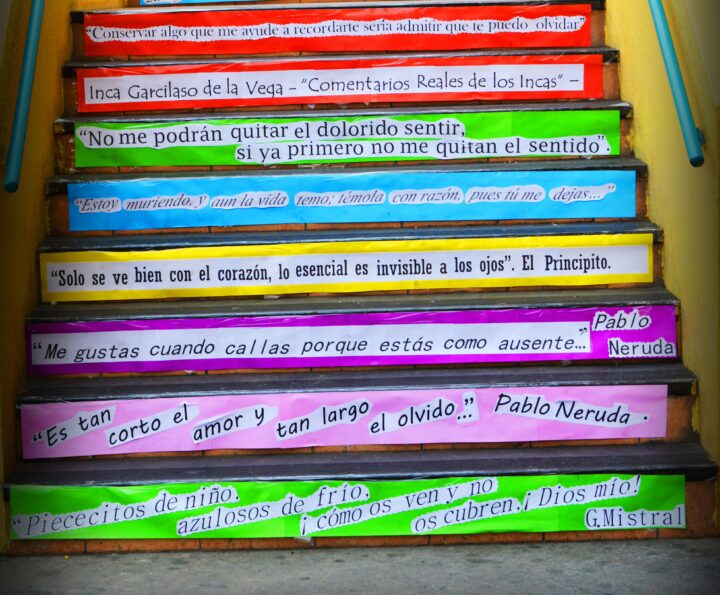 “Conservar algo que me ayude a recordarte seria admitir que te puedo olvidar”
Inca Garcilaso de la Vega – “Comentarios Reales de los Incas” –
“No me podrán quitar el dolorido sentir,
si ya primero no me quitan el sentido”.
“Estoy muriendo, y aun la vida temo; témola con razón, pues tú me dejas...”
“Solo se ve bien con el corazón, lo esencial es invisible a los ojos”. El Principito.
“Me gustas cuando callas porque estás como ausente...” Pablo
Neruda
“Es tan corto el amor y tan largo el olvido...” Pablo Neruda .
“Piececitos de niño, azulosos de frío, ¡cómo os ven y no os cubren,¡Dios mío!
G.Mistral